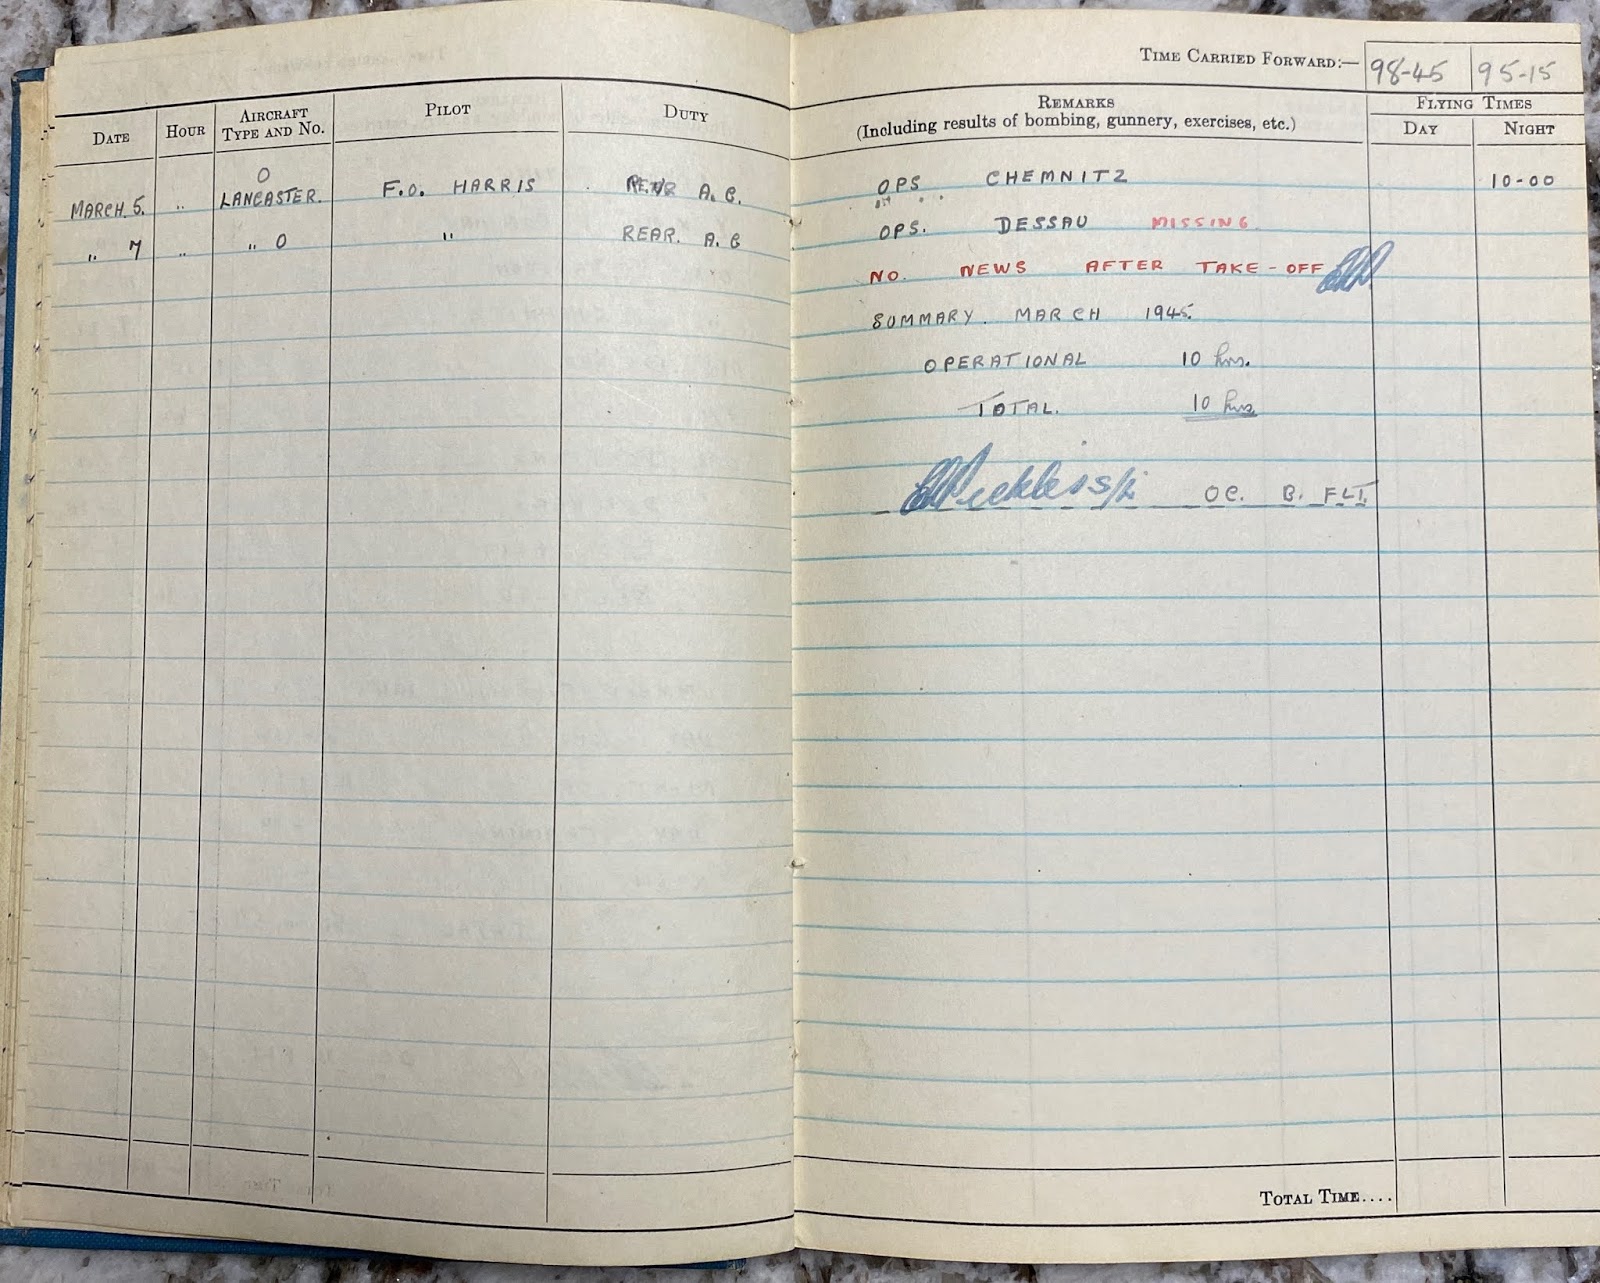 DATE HOUR AIRCRAFT TYPE AND NO. PILOT DUTY
O
MARCH 5. " LANCASTER. F.O. HARRIS REAR A.G.
" 7 " " O " REAR. A.G
TIME CARRIED FORWARD:— 98-45 95-15
REMARKS
(Including results of bombing, gunnery, exercises, etc.)
FLYING TIMES
DAY NIGHT
OPS CHEMNITZ 10-00
OPS. DESSAU MISSING.
NO. NEWS AFTER TAKE-OFF
SUMMARY. MARCH 1945.
OPERATIONAL 10 hrs.
TOTAL. 10 hrs.
OC. B. FLT.
TOTAL TIME....